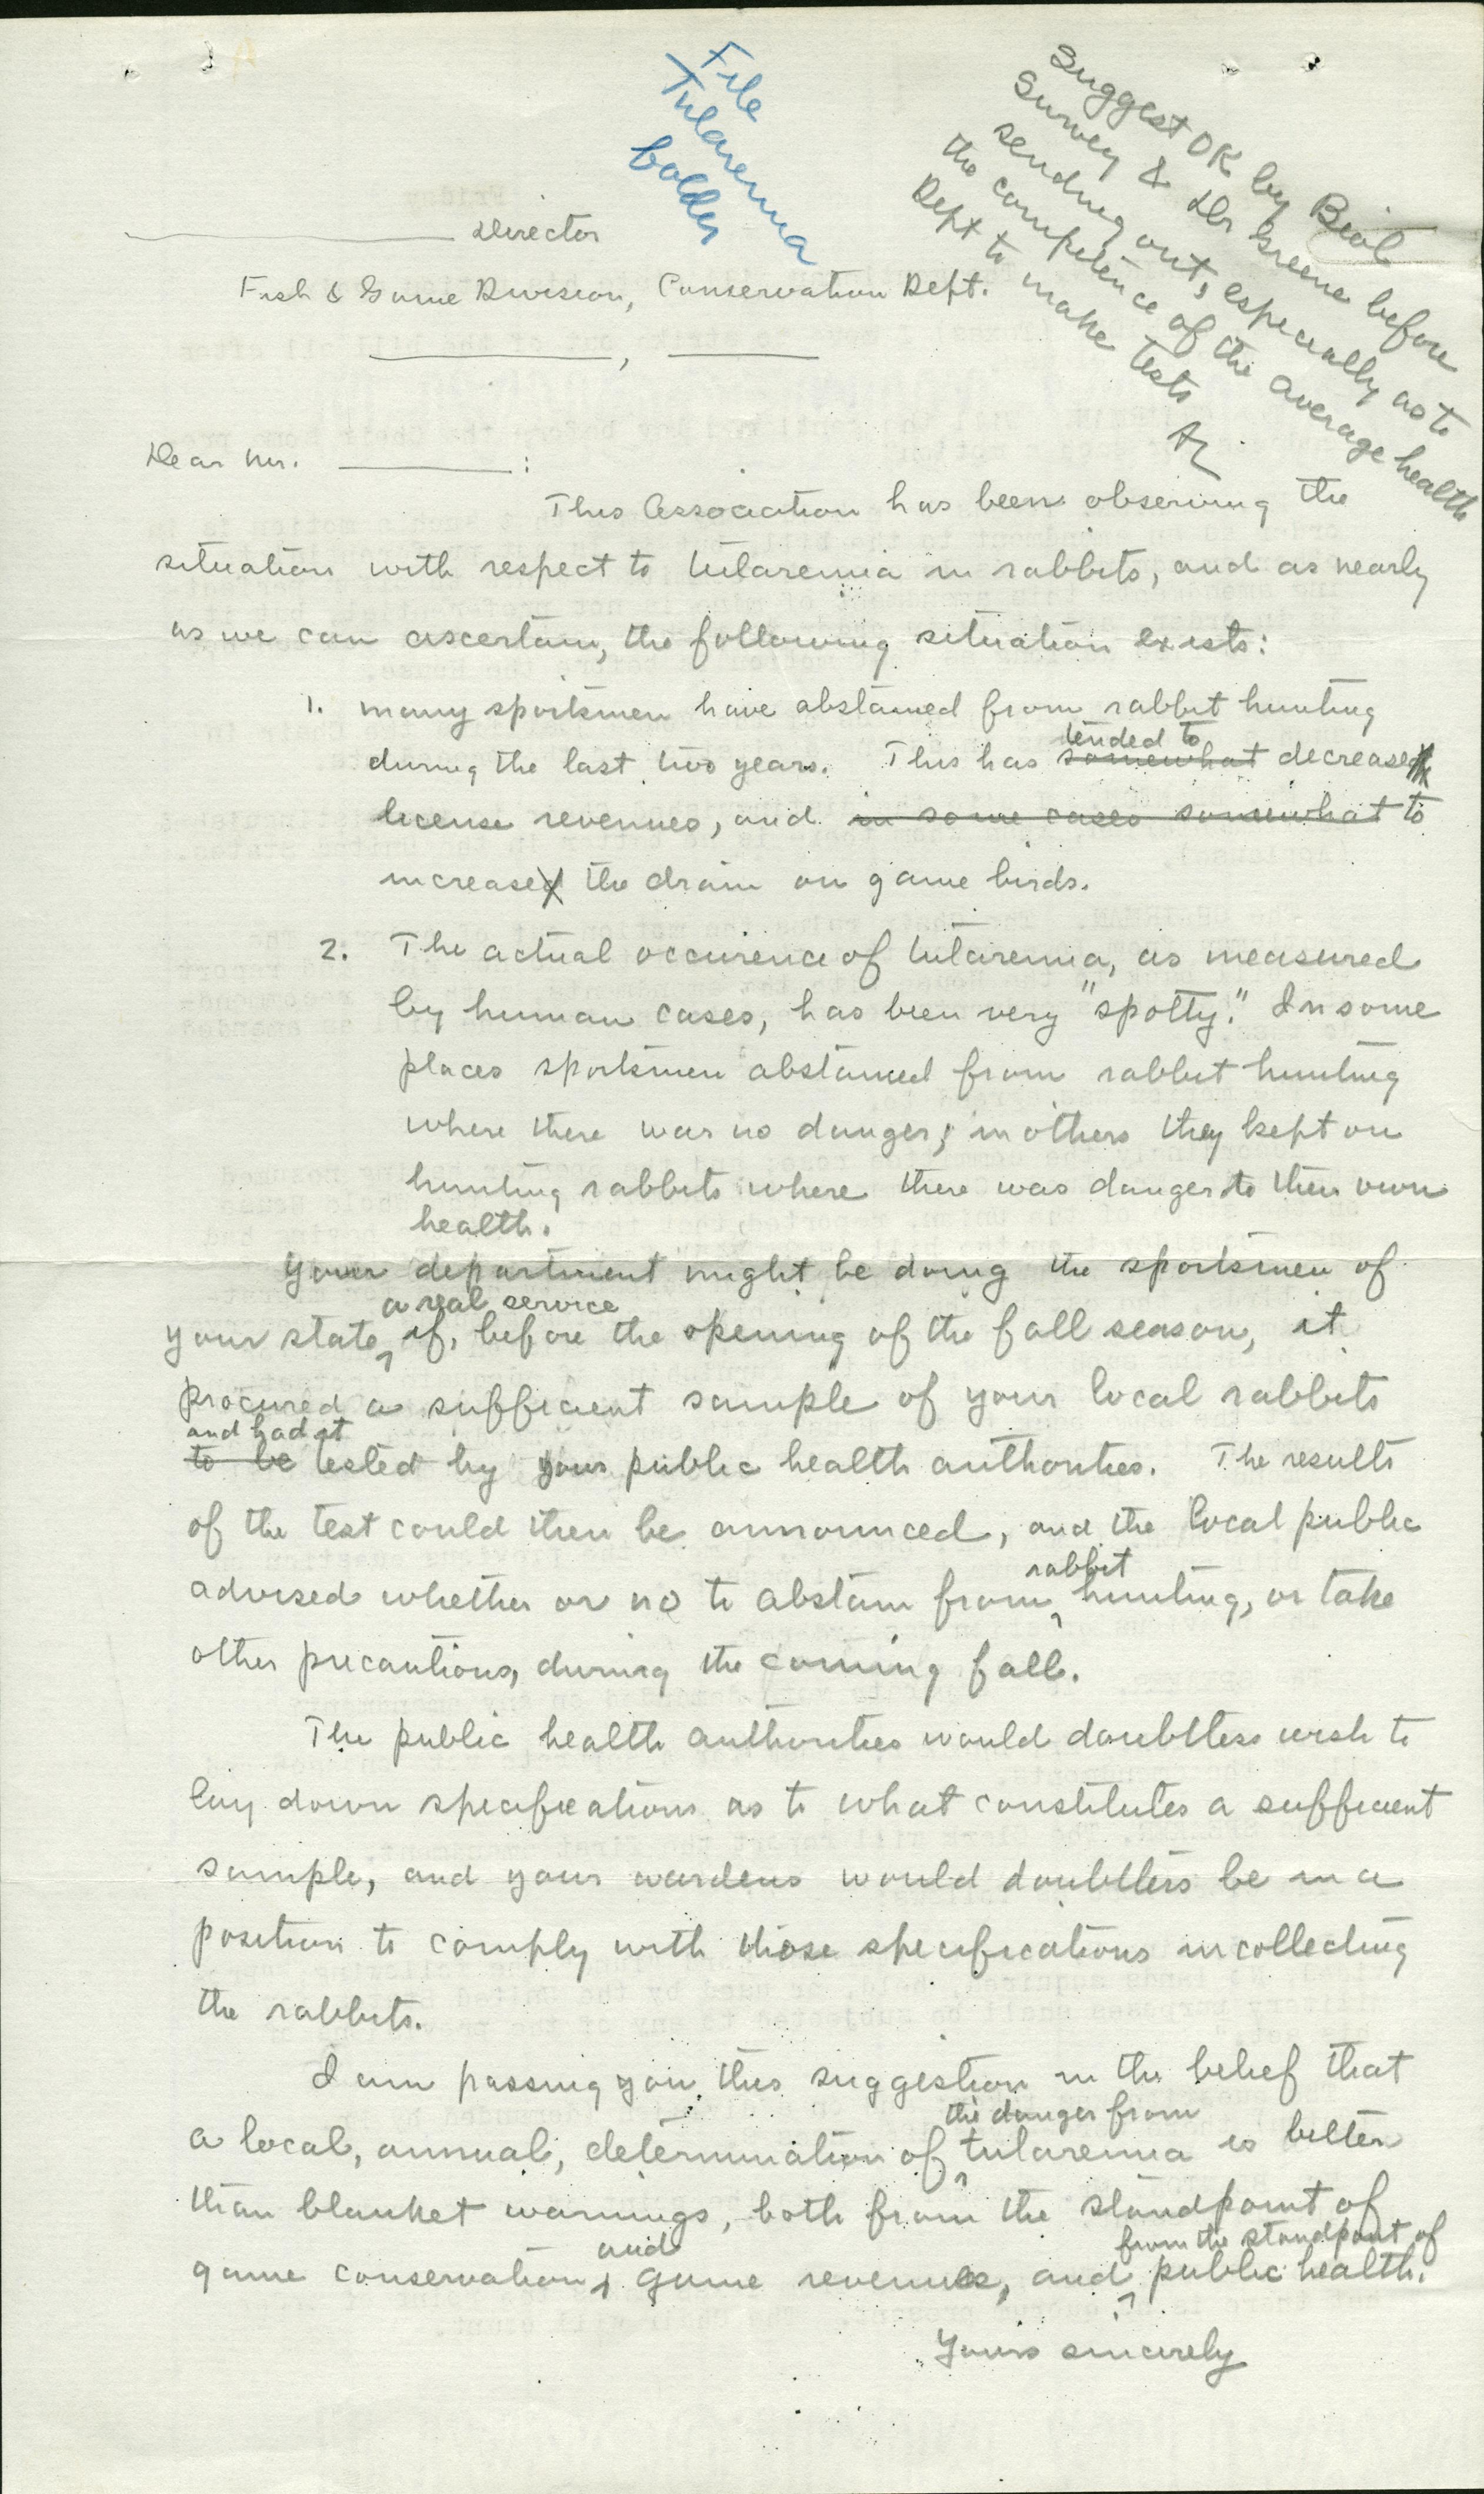 File
Tularemia
folder
Suggest OK by Biol
Survey & Dr Greene before
sending out, especially as to
the competence of the average health
Dept to make tests
AL
Director
Fish & Game Division, Conservation Dept.
,
Dear Mr. :
This Association has been observing the
situation with respect to tularemia in rabbits, and as nearly
as we can ascertain, the following situation exists:
1. many sportsmen have abstained from rabbit hunting
tended to
during the last two years. This has somewhat decreased
license revenues, and in some cases somewhat to
increased the drain on game birds.
2. The actual occurence of tularemia, as measured
by human cases, has been very "spotty." In some
places sportsmen abstained from rabbit hunting
where there was no danger; in others they kept on
hunting rabbits where there was danger to their own
health.
Your department might be doing the sportsmen of
a real service
your state, if, before the opening of the fall season, it
procured a sufficient sample of your local rabbits
and had it
to be tested by your public health authorities. The results
of the test could then be announced, and the local public
rabbit
advised whether or no to abstain from hunting, or take
other precautions, during the coming fall.
The public health authorities would doubtless wish to
lay down specifications as to what constitutes a sufficient
sample, and your wardens would doubtless be in a
position to comply with those specifications in collecting
the rabbits.
I am passing you this suggestion in the belief that
the danger from
a local, annual, determination of tularemia is better
than blanket warnings, both from the standpoint of
and from the standpoint of
game conservation, game revenues, and public health.
Yours sincerely